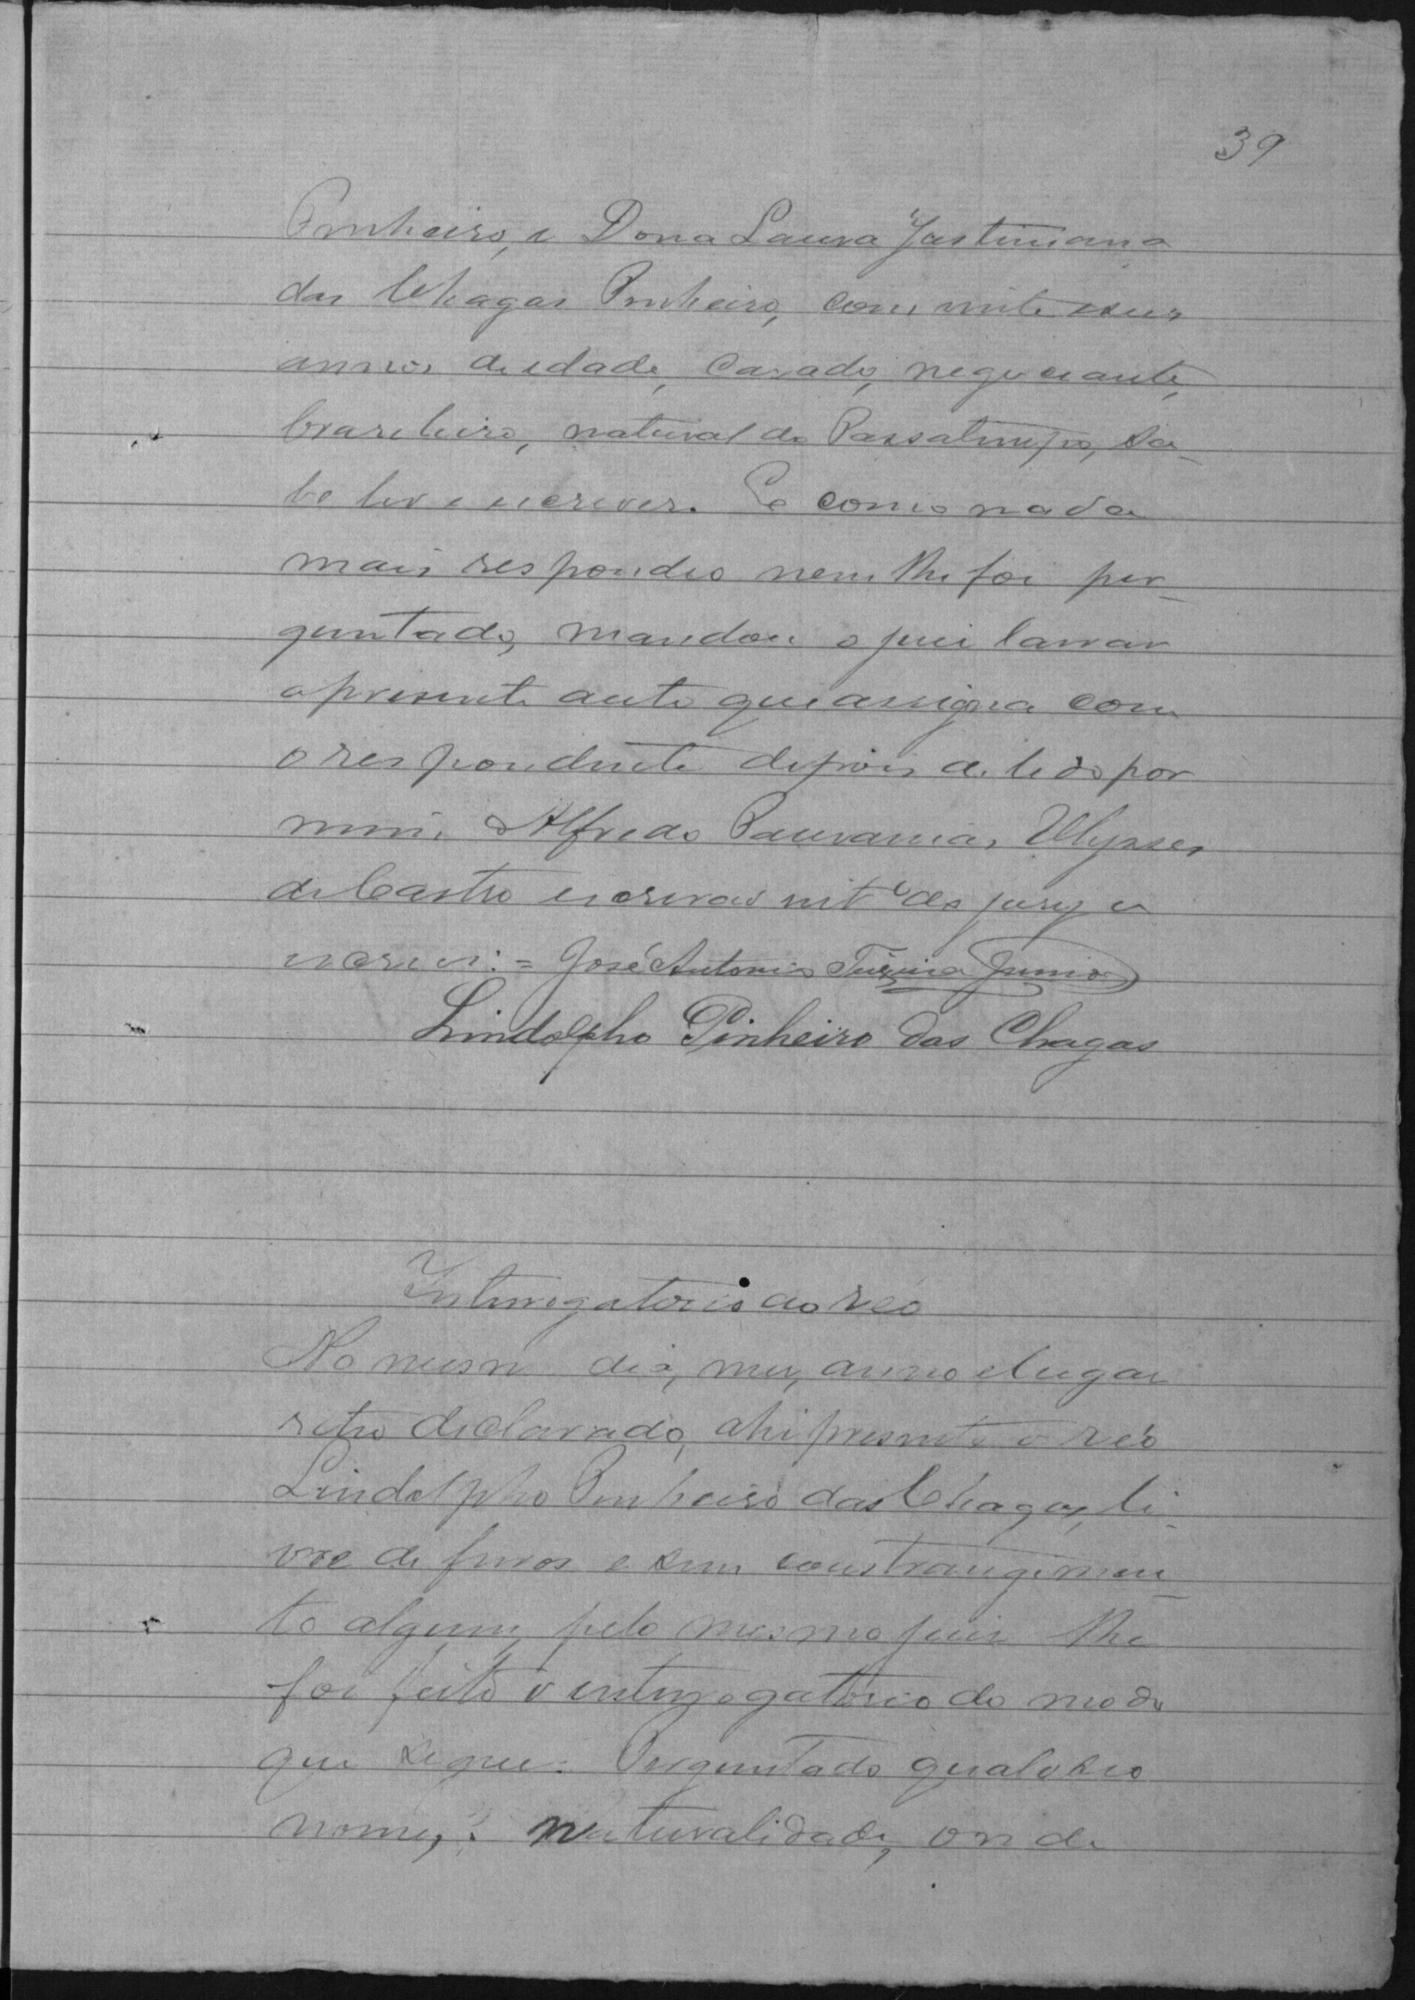 39
Pinheiro, e Dona Laura Justiniana
das Chagas Pinheiro, com vinte e seis
annos de edade, casado, negociante,
brasileiro, natural do Passatempo, sa-
be ler e escrever. E como nada
mais respondeo nem lhe foi per-
guntado, mandou o juiz lavrar
o presente auto que assigna com
o respondente depois de lido por
mim. Alfredo Ulysses
de Castro escrivão intº do jury o
escrevi:= José Antonio Teixeira Junior
Lindolpho Pinheiro das Chagas
Interrogatorio ao reo
No mesmo dia, mez, anno e lugar
retro declarado, ahi presente o reo
Lindolpho Pinheiro das Chagas, li-
vre de ferros e sem constrangimen-
to algum, pelo mesmo juiz lhe
foi feito o interrogatorio do modo
que segue: Perguntado qual o seo
nome, naturalidade, onde